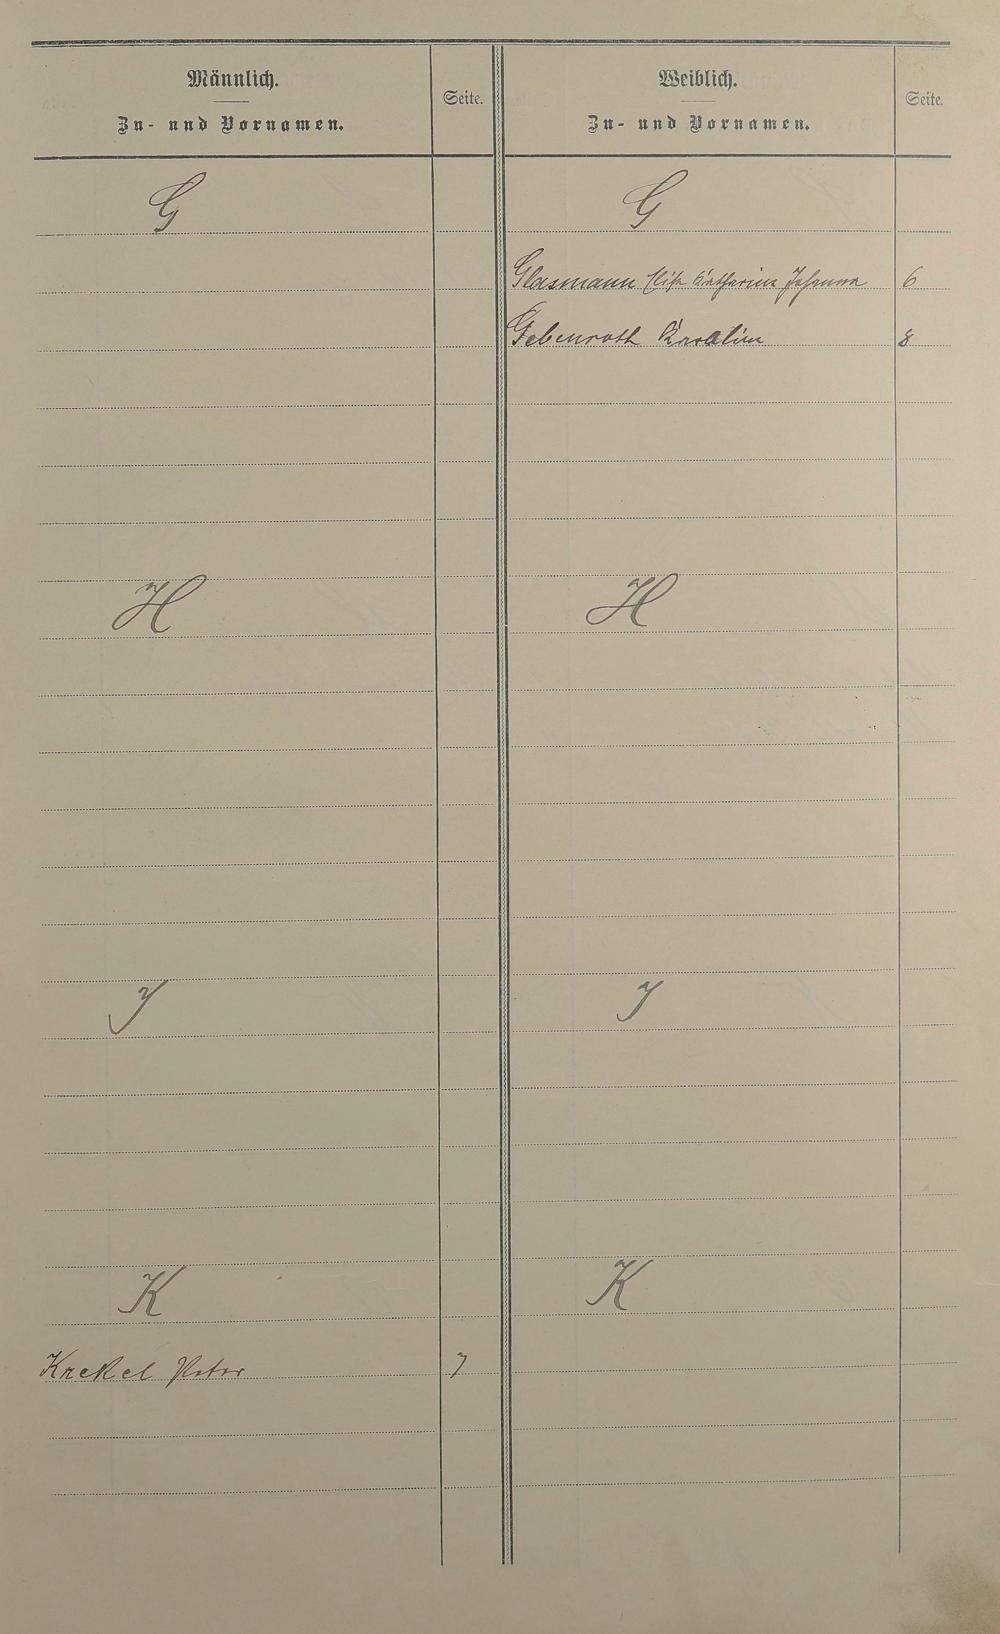 Männlich.
Zu- und Vornamen.
Seite.
Weiblich.
Zu- und Vornamen.
Seite.
G
G
Glasmann Elis. Katharina Johanna 6
Gebenroth Karolina 8
H
H
J
J
K
K
Krekel Peter 7